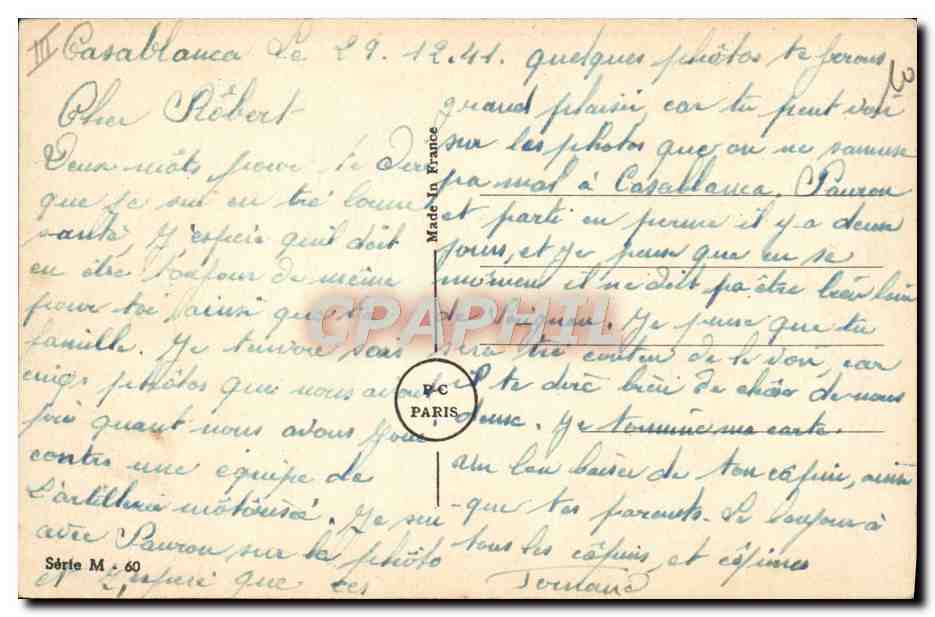 III Casablanca Le 29.12.41.
Cher Robert
Deux môts pour te dire
que je suit en tré bonne
santé, J'espére qu'il doit
en être toujour de même
pour toi ainsi que ta
famille. Je t'envoie sous
photos que nous avons
fait quant nous avons joué
contre une équipe de
L'artillerie môtôrisée. Je sui
avec Pauron sur la phôto
et J'espere que ces
quelques phôtos te ferons
grand plaisir, car tu peut voir
sur les photos que on ne samuse
pa mal à Casablanca. Pauron
et parti en perme il y a deux
jours, et je pense que en se
môment il ne doit pa être bien loin
de. Je pense que tu
sera tré conten de le voir, car
il te diré bien de chôse de nous
deux. Je termine ma carte.
un bon baiser de ton côpin, ainsi
que tes parents. Le bonjour à
tous les côpins, et côpines
Fernand
3
Made in France
PC
PARIS
Série M - 60
CPAPHIL